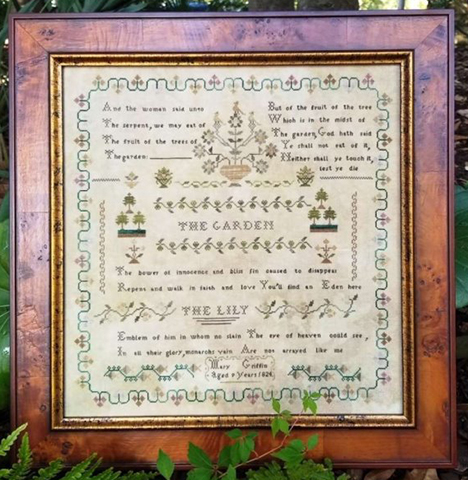 And the woman said unto
The serpent, we may eat of
The fruit of the trees of
The garden:
But of the fruit of the tree
Which is in the midst of
The garden, God hath said
Ye shall not eat of it,
Neither shall ye touch it,
lest ye die
THE GARDEN
The bower of innocence and bliss sin caused to disappear
Repent and walk in faith and love You'll find an Eden here
THE LILY
Emblem of him in whom no stain The eye of heaven could see,
In all their glory, monarchs vain Are not arrayed like me
Mary Griffin
Aged 9 Years 1828